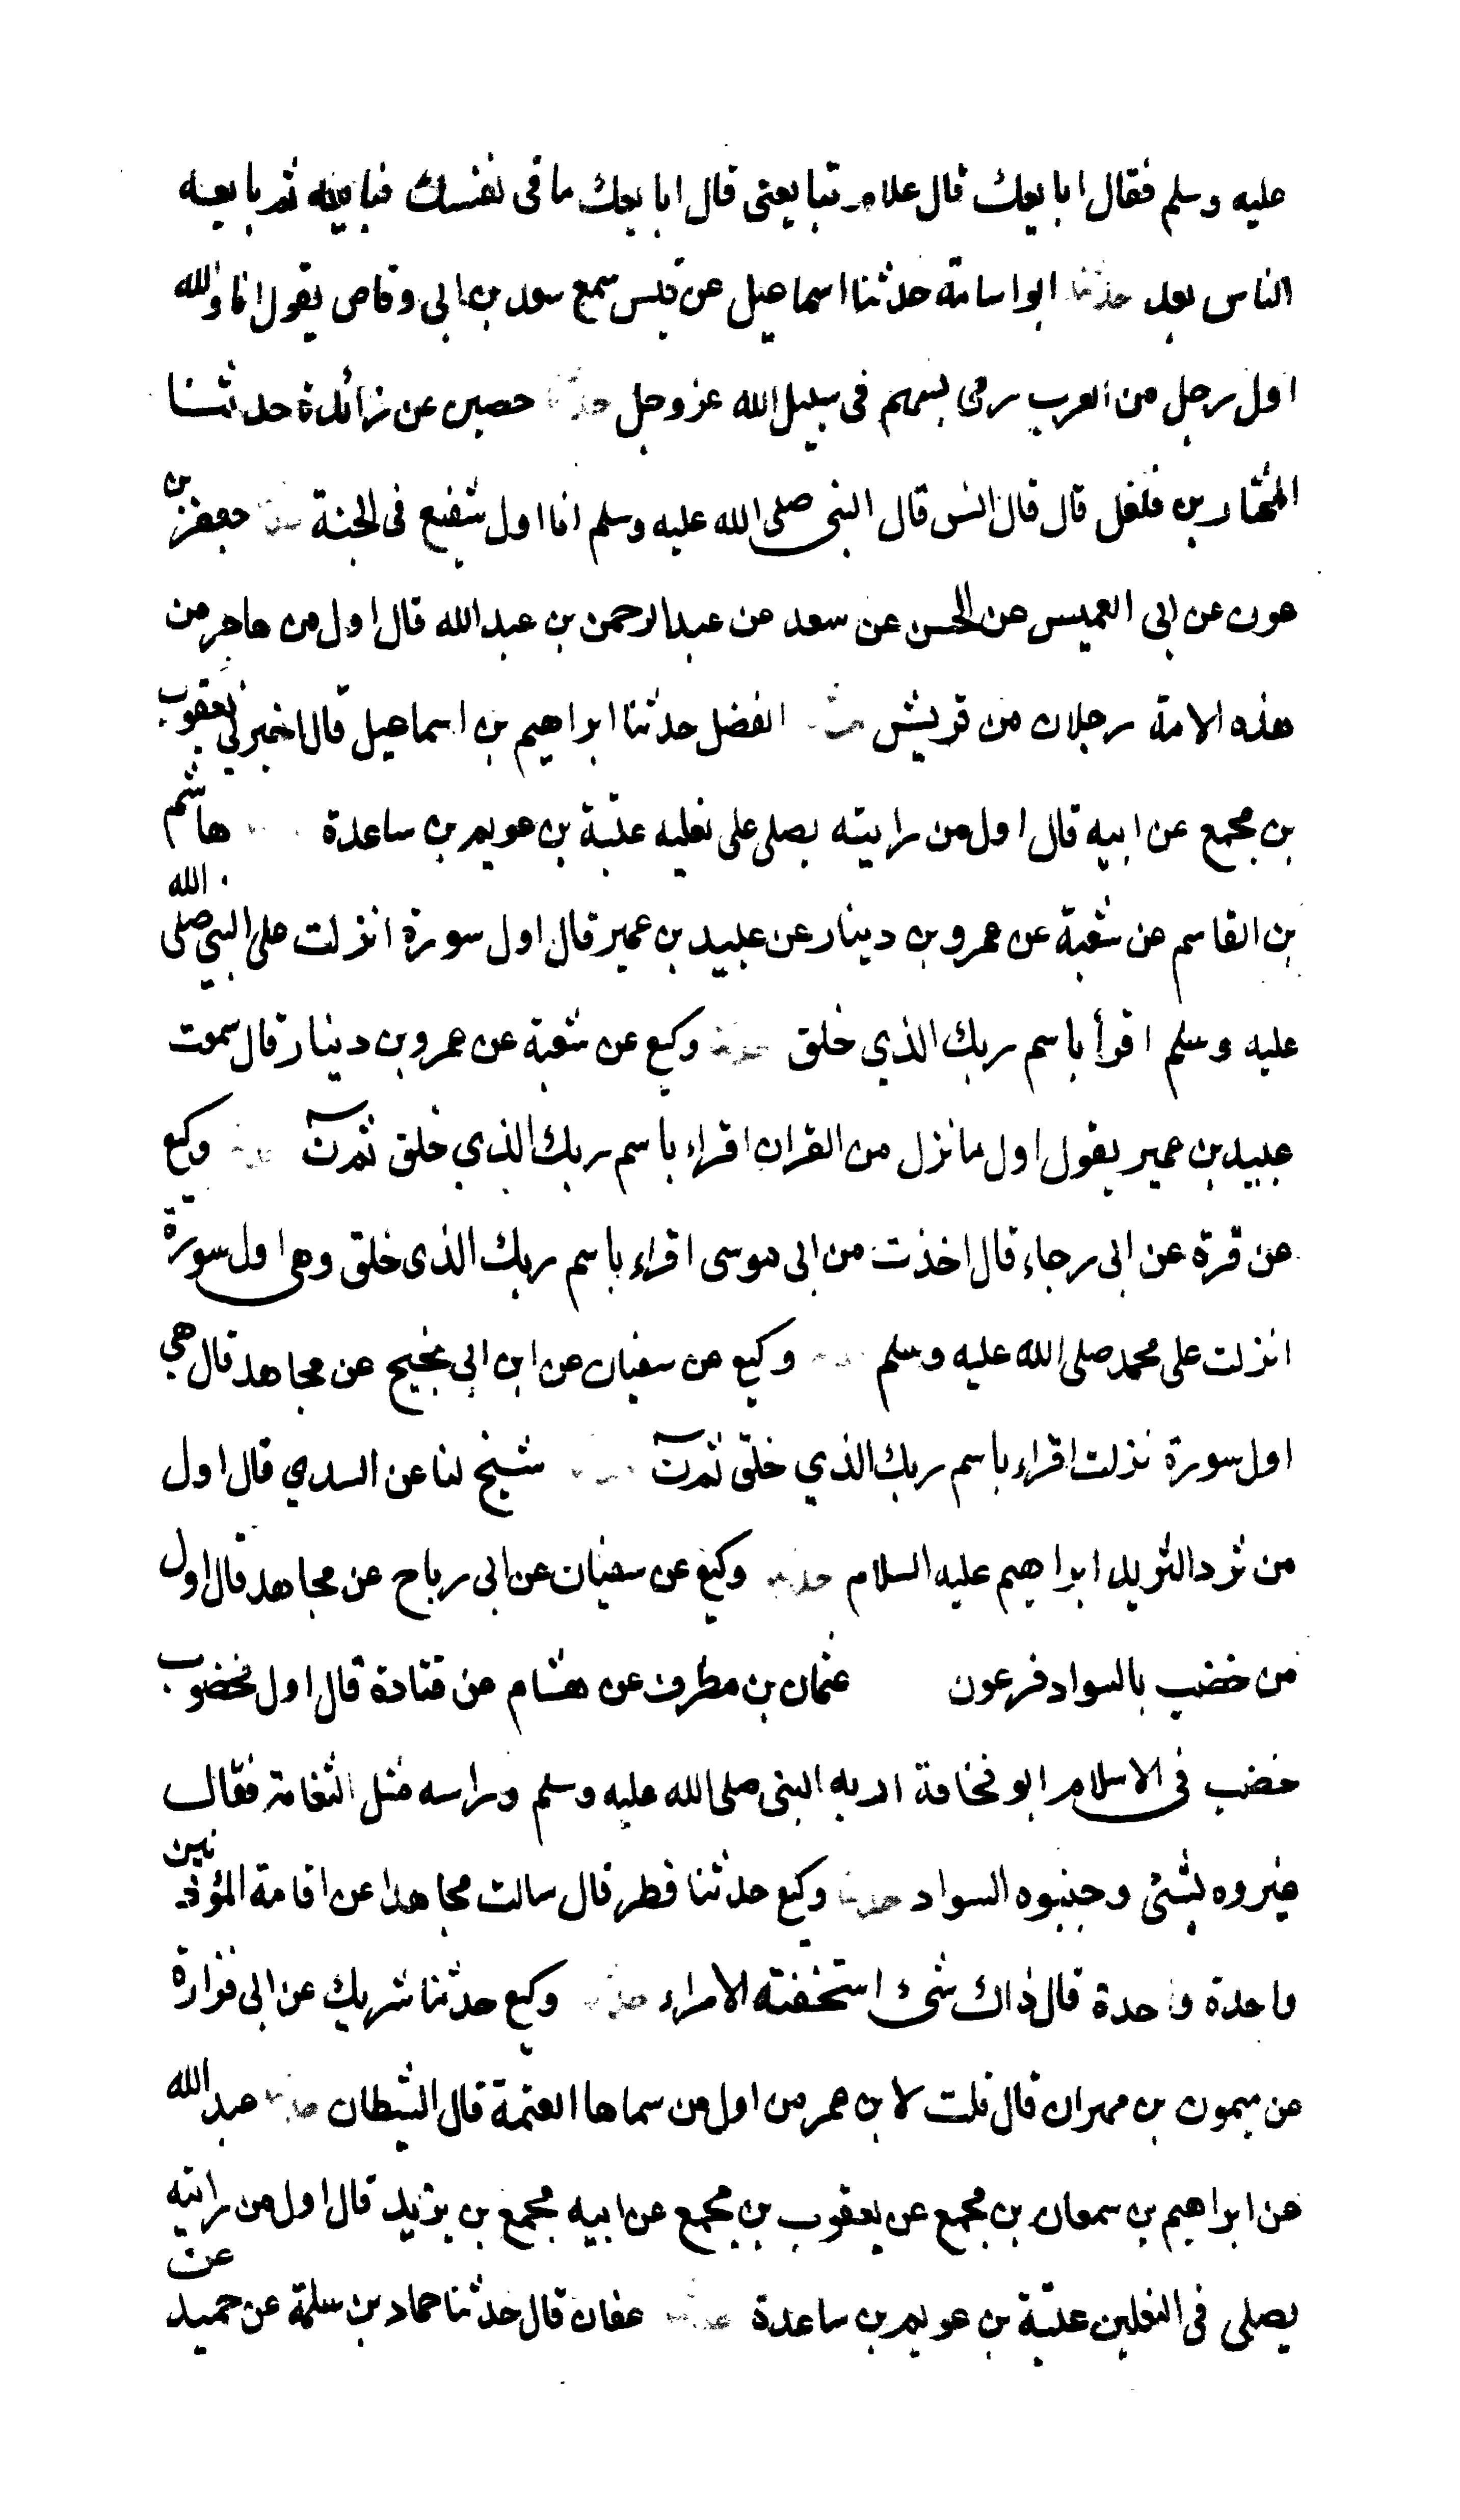 عليه وسلم فقال ابايعك قال علام تبايعنى قال ابايعك ما فى نفسك فبايعه ثم بايعه
الناس بعد حدثنا ابو اسامة حدثنا اسماعيل عن قيس سمع سعد بن ابى وقاص يقول انا والله
اول رجل من العرب رمى بسهم فى سبيل الله عز وجل حدثنا حصين عن زائدة حدثنا
المختار بن فلفل قال قال انس قال النبى صلى الله عليه وسلم انا اول شفيع فى الجنة حدثنا جعفر بن
عون عن ابى العميس عن الحسن عن سعد عن عبد الرحمن بن عبد الله قال اول من هاجر من
هذه الامة رجلان من قريش حدثنا الفضل حدثنا ابراهيم بن اسماعيل قال اخبرني يعقوب
بن مجمع عن ابيه قال اول من رايته يصلى على نعليه عتبة بن عويم بن ساعدة هاشم
بن القاسم عن شعبة عن عمرو بن دينار عن عبيد بن عمير قال اول سورة انزلت على النبي صلى الله
عليه وسلم اقرأ باسم ربك الذي خلق حدثنا وكيع عن شعبة عن عمرو بن دينار قال سمعت
عبيد بن عمير يقول اول ما نزل من القران اقراء باسم ربك الذي خلق ثم نٓ حدثنا وكيع
عن قرة عن ابى رجاء قال اخذت من ابى موسى اقراء باسم ربك الذى خلق وهى اول سورة
انزلت على محمد صلى الله عليه وسلم وكيع عن سفيان عن ابن ابي نجيح عن مجاهد قال هي
اول سورة نزلت اقراء باسم ربك الذي خلق ثم نٓ شيخ لنا عن السدي قال اول
من ثرد الثريد ابراهيم عليه السلام حدثنا وكيع عن سفيان عن ابى رباح عن مجاهد قال اول
من خضب بالسواد فرعون عثمان بن مطرف عن هشام عن قتادة قال اول مخضوب
خضب فى الاسلام ابو نحافة اد به النبى صلى الله عليه وسلم وراسه مثل الثغامة فقال
غيروه بشئ وجنبوه السواد حدثنا وكيع حدثنا فطر قال سالت مجاهدا عن اقامة المؤذنين
واحدة واحدة قال ذاك شىء استخفته الامراء حدثنا وكيع حدثنا شريك عن ابى فزارة
عن ميمون بن مهران قال قلت لابن عمر من اول من سماها العتمة قال الشيطان حدثنا عبد الله
عن ابراهيم بن سمعان بن مجمع عن يعقوب بن مجمع عن ابيه مجمع بن يزيد قال اول من رايته
يصلى فى النعلين عتبة بن عويم بن ساعدة حدثنا عفان قال حدثنا حماد بن سلمة عن حميد عن